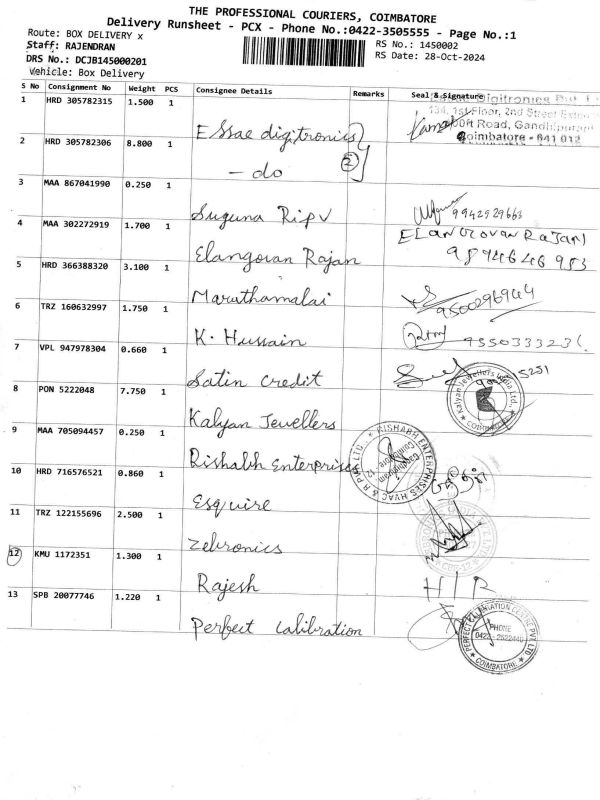 THE PROFESSIONAL COURIERS, COIMBATORE
Delivery Runsheet - PCX - Phone No.:0422-3505555 - Page No.:1
Route: BOX DELIVERY x
Staff: RAJENDRAN
RS No.: 1450002
DRS No.: DCJB145000201
RS Date: 28-Oct-2024
Vehicle: Box Delivery
S No Consignment No Weight PCS Consignee Details Remarks Seal & Signature
1 HRD 305782315 1.500 1 Essae digitronics
134, 1st Floor, 2nd Street
Road, Gandhipuram
Coimbatore - 641 012
2 HRD 305782306 8.800 1 - do 2
3 MAA 867041990 0.250 1 Suguna Ripv 9942929663
4 MAA 302272919 1.700 1 Elangovan Rajan ELANGOVAN RAJAN
9894646953
5 HRD 366388320 3.100 1 Marathamalai 9500296944
6 TRZ 160632997 1.750 1 K. Hussain
7 VPL 947978304 0.660 1 Satin credit
8 PON 5222048 7.750 1 Kalyan Jewellers Kalyan Jewellers India Ltd., COIMBATORE
9 MAA 705094457 0.250 1 Rishabh Enterprises RISHABH ENTERPRISES HVAC & R PVT LTD. Coimbatore - 12
10 HRD 716576521 0.860 1 Esquire
11 TRZ 122155696 2.500 1 Zebronics
12 KMU 1172351 1.300 1 Rajesh H/R
13 SPB 20077746 1.220 1 Perfect calibration PERFECT CALIBRATION CENTRE PVT. LTD PHONE COIMBATORE